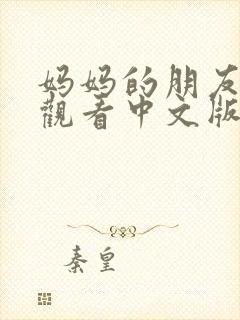 妈妈的朋友
觀看中文版
秦皇